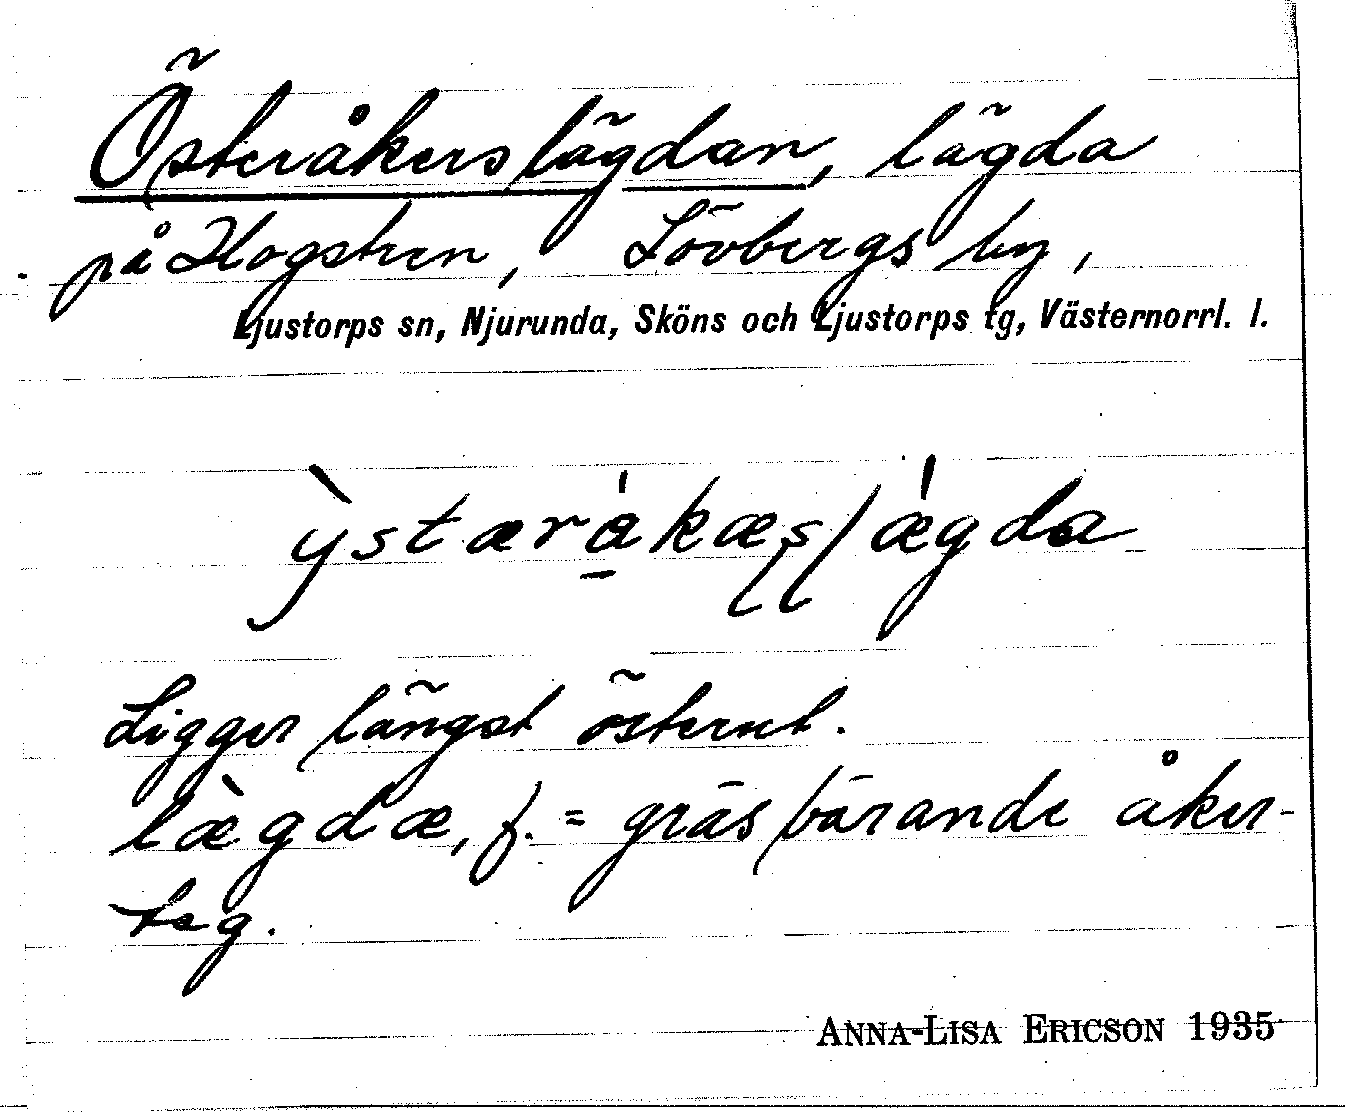 Österåkerslägdan, lägda
på Hogstren, Lövbergs by,
Ljustorps sn, Njurunda, Sköns och Ljustorps tg, Västernorrl. l.
ỳstæråkæslægda
Ligger längst österut.
lægdæ, f. = gräsbärande åker-
teg.
ANNA-LISA ERICSON 1935